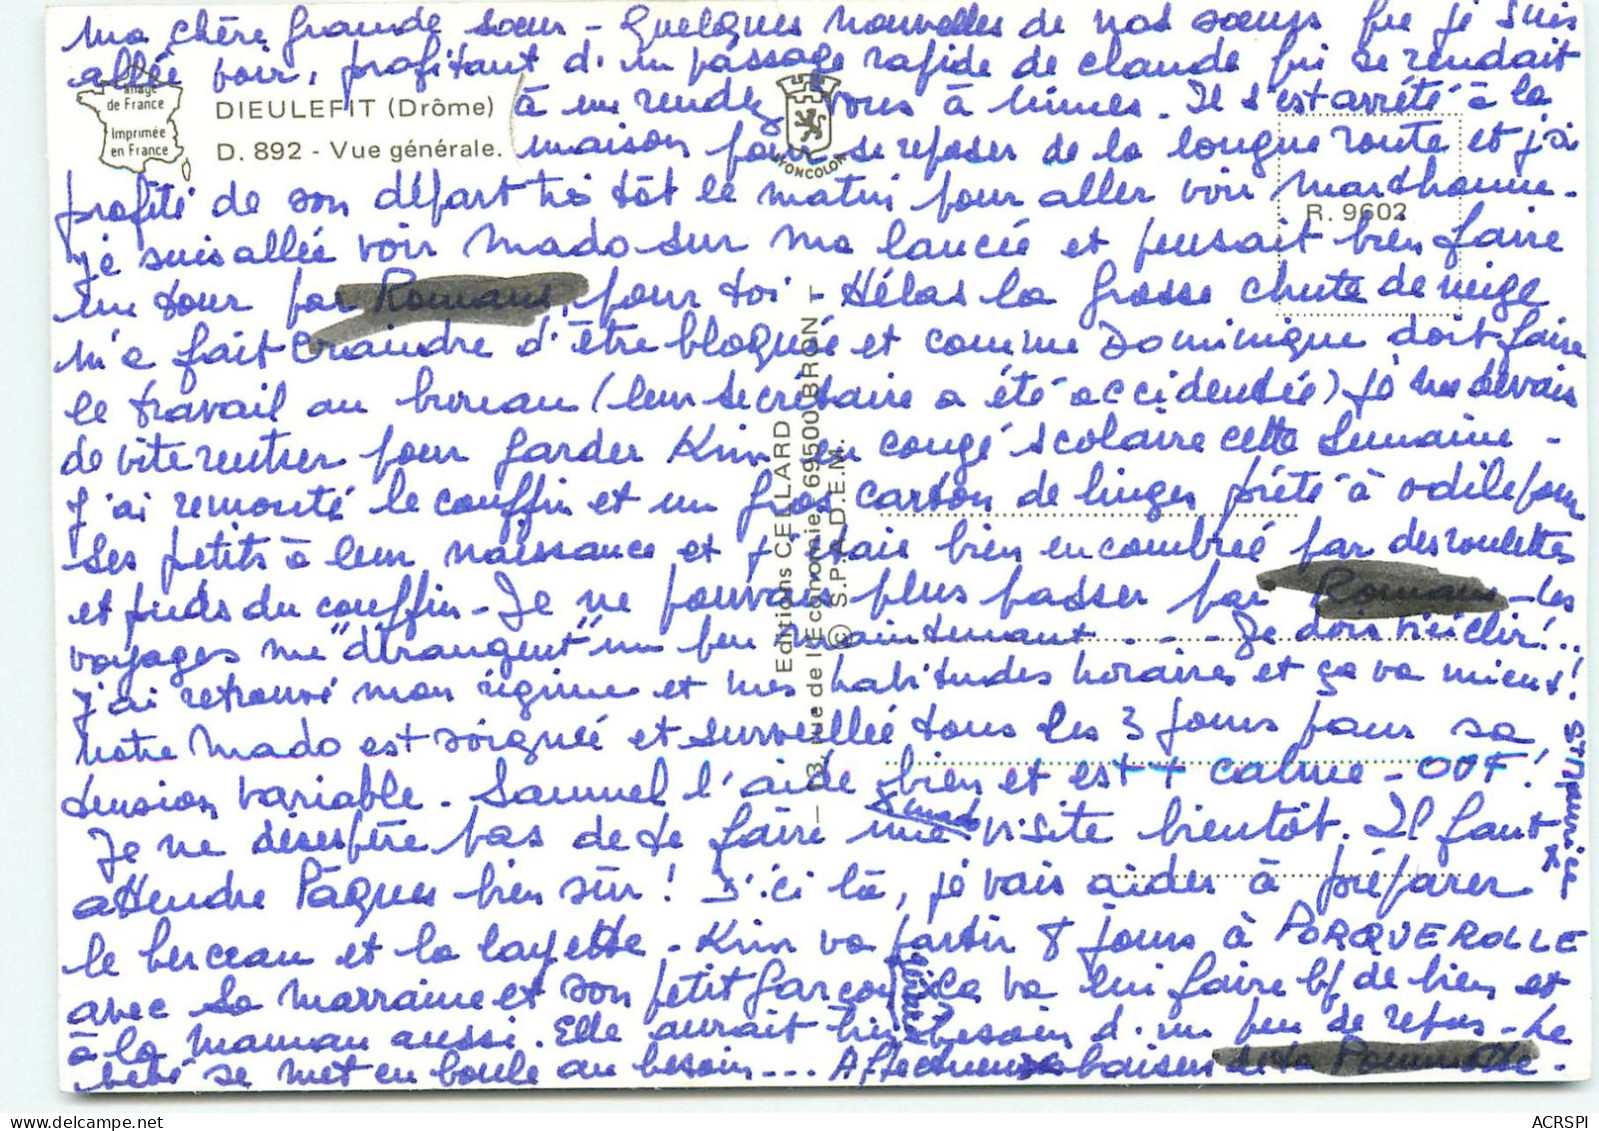 Ma chère grande sœur - Quelques nouvelles de nos sœurs que je suis
allée voir, profitant d'un passage rapide de Claude qui se rendait
à un rendez vous à Nîmes. Il s'est arrêté à la
maison pour se reposer de la longue route et j'ai
Image
de France
Imprimée
en France
DIEULEFIT (Drôme)
D. 892 - Vue générale.
R. 9602
profité de son départ très tôt le matin pour aller voir
je suis allée voir Mado sur ma lancée et pensait bien faire
un tour par Romans, pour toi - Hélas la grosse chute de neige
m'a fait craindre d'être bloquée et comme Dominique doit faire
le travail au bureau (leur secrétaire a été accidentée) je me devais
de vite rentrer pour garder Krin en congé scolaire cette semaine -
J'ai remonté le couffin et un gros carton de linges prêté à Odile pour
ses petits à leur naissance et j'étais bien encombrée par des roulettes
et pieds du couffin - Je ne pouvais plus passer par Romans - les
voyages me "dérangent" un peu maintenant . - - Je dois vieillir!..
J'ai retrouvé mon régime et mes habitudes horaires et ça va mieux!
notre Mado est soignée et surveillée tous les 3 jours pour sa
tension variable. Samuel l'aide bien et est + calme - OUF!
Je ne désespère pas de te faire une visite bientôt. Il faut
attendre Pâques bien sûr! D'ici là, je vais aider à préparer
le berceau et la layette - Krin va partir 8 jours à PORQUEROLLE
avec sa marraine et son petit garçon. Ça va lui faire bf de bien et
à la maman aussi. Elle aurait bien besoin d'un peu de repos - Le
bébé se met en boule au besoin... Affectueux baisers de ta
Editions CELLARD
13, rue de l'Economie, 69500 BRON
© S.P.A.D.E.M.
ACRSPI